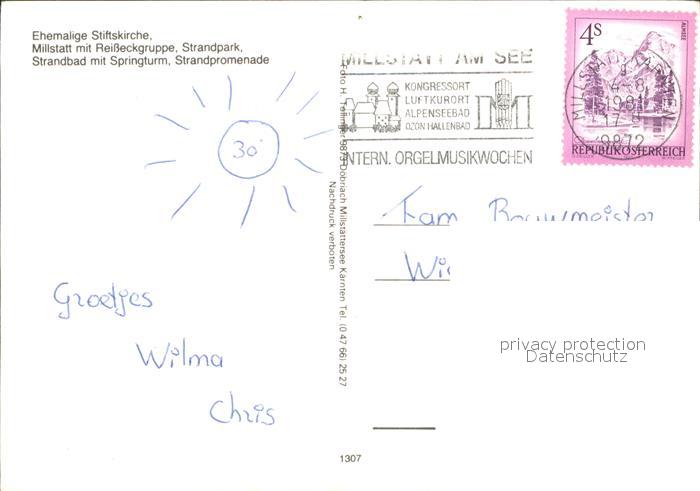 Ehemalige Stiftskirche,
Millstatt mit Reißeckgruppe, Strandpark,
Strandbad mit Springturm, Strandpromenade
MILLSTATT AM SEE
KONGRESSORT
LUFTKURORT
ALPENSEEBAD
OZON HALLENBAD
INTERN. ORGELMUSIKWOCHEN
4S
ALMSEE
1981
9872
REPUBLIK ÖSTERREICH
30°
Groetjes
Wilma
Chris
9873 Döbriach Millstättersee Kärnten Tel. (0 47 66) 25 27
Nachdruck verboten
Fam Bouwmeister
privacy protection
Datenschutz
1307